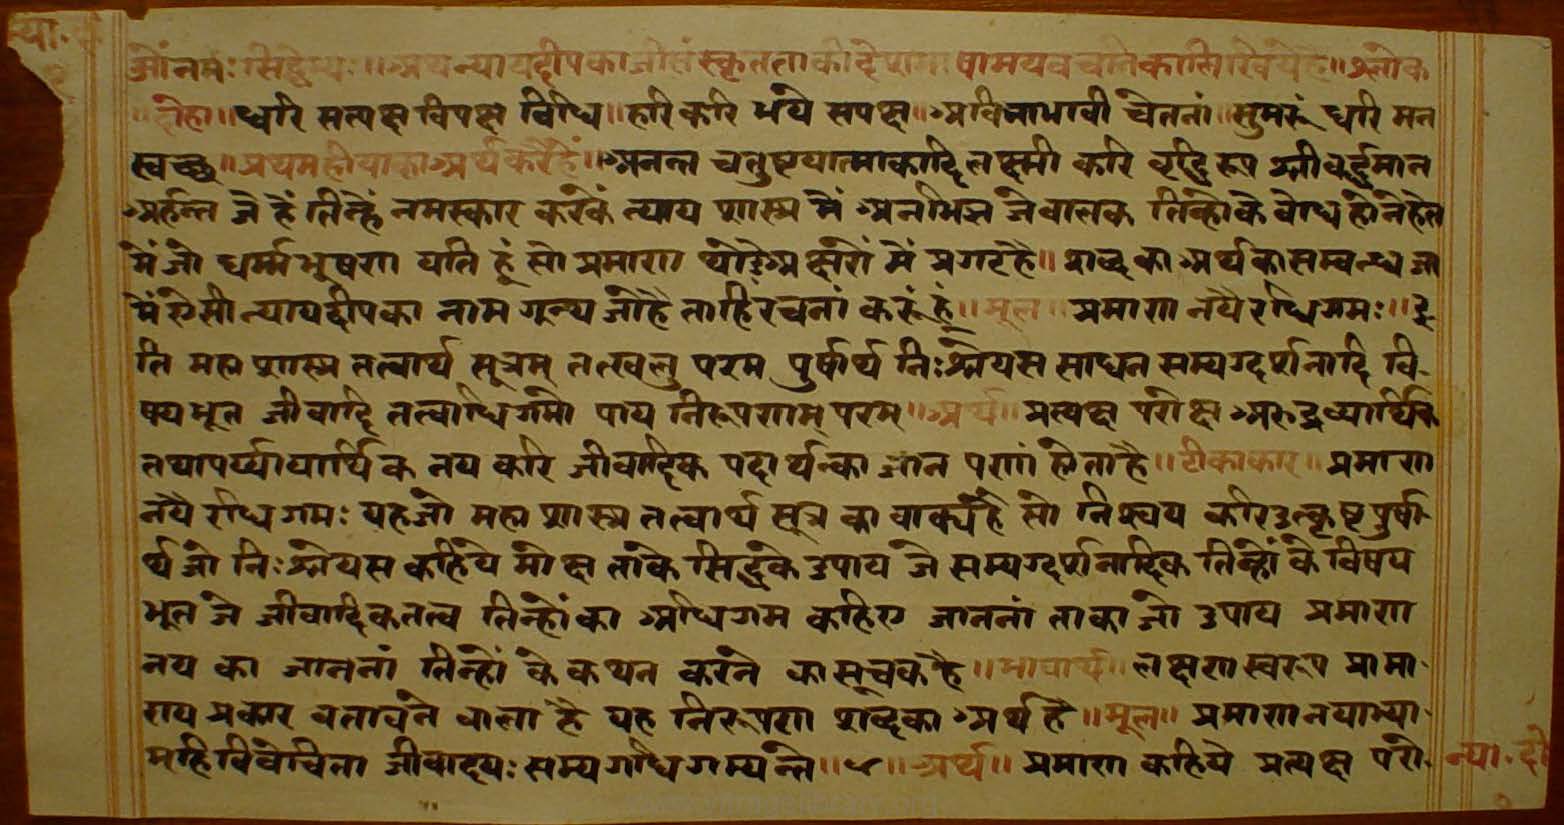 न्या.
ओंनमः सिद्धेभ्यः ॥ अथ न्यायदीपकाजीसंस्कृतताकीदेशभाषामयवचनिकालिखियेहै ॥ श्लोक
॥ दोहा ॥ धारि सत्पक्ष विपक्ष विधि ॥ हारि करि भये सपक्ष ॥ अविनाभावी चेतनां ॥ सुमरूं धारि मन
स्वच्छ ॥ प्रथमही याका अर्थ करैहैं ॥ अनन्त चतुष्टयात्माकादि लक्ष्मी करि वृद्धि रूप श्रीवर्द्धमान
अर्हन्त जे हैं तिन्हैं नमस्कार करिकें न्याय शास्त्र मैं अनभिज्ञ जे बालक तिन्हौके बोध होने हेत
मैं जो धर्म्म भूषण यति हूं सो प्रमाण थोडे अक्षरों में प्रगट है ॥ शब्द का अर्थ का सम्बन्ध जा
में ऐसी न्यायदीपका नाम ग्रन्थ जो है ताहि रचनां करूं हूं ॥ मूल ॥ प्रमाण नयै रधिगमः ॥ इ
ति महा शास्त्र तत्वार्थ सूत्रम् तत्खलु परम पुर्षार्थ निःश्रेयस साधन सम्यग्दर्शनादि वि-
षय भूत जीवादि तत्वाधिगमो पाय निरूपणाम् परम् ॥ अर्थ ॥ प्रत्यक्ष परोक्ष अरु द्रव्यार्थि
तथा पर्य्यायार्थिक नय करि जीवादिक पदार्थन्का ज्ञान पणां होता है ॥ टीकाकार ॥ प्रमाण
नयै रधिगमः यह जो महा शास्त्र तत्वार्थ सूत्र का वाक्य है सो निश्चय करि उत्कृष्ट पुर्षा-
र्थ जो निःश्रेयस कहिये मोक्ष ताके सिद्ध के उपाय जे सम्यग्दर्शनादिक तिन्हों के विषय
भूत जे जीवादिक तत्व तिन्हों का अधिगम कहिए जाननां ताका जो उपाय प्रमाण
नय का जाननां तिन्हों के कथन करने का सूचक है ॥ भावार्थ ॥ लक्षण स्वरूप प्रामा-
ण्य प्रकार बतावने वाला है यह निरूपण शब्द का अर्थ है ॥ मूल ॥ प्रमाण नयाभ्या-
म्हि विवेचिता जीवादयः सम्यगधि गम्यन्ते ॥ ५ ॥ अर्थ ॥ प्रमाण कहिये प्रत्यक्ष परो-
न्या. दी